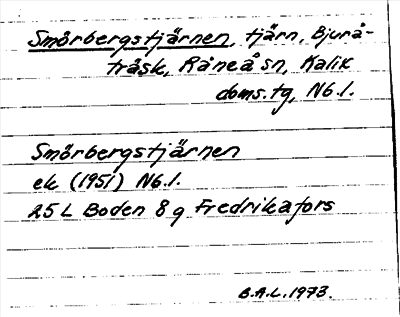 Smörbergstjärnen, tjärn, Bjurå-
träsk, Råneå sn, Kalix
doms.tg, Nb.l.
Smörbergstjärnen
ek (1951) Nb.l.
25 L Boden 8 g Fredrikafors
B.A.L. 1973.